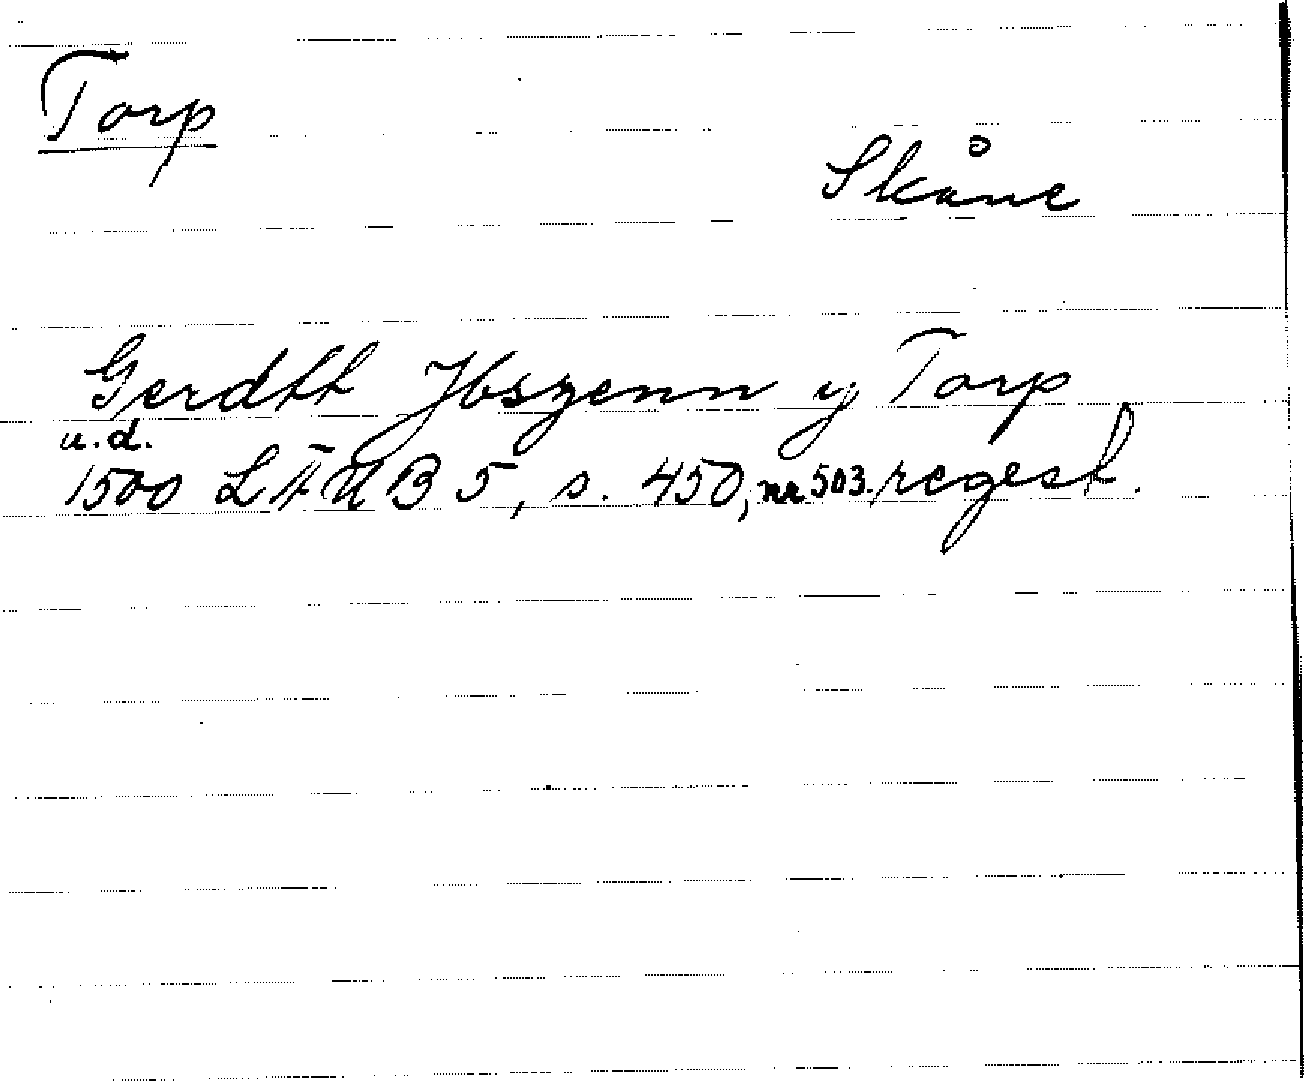 Torp
Skåne
Gerdtt Jbszenn y Torp
u.d.
1500 LÄUB 5, s. 450, nr 503. regest.